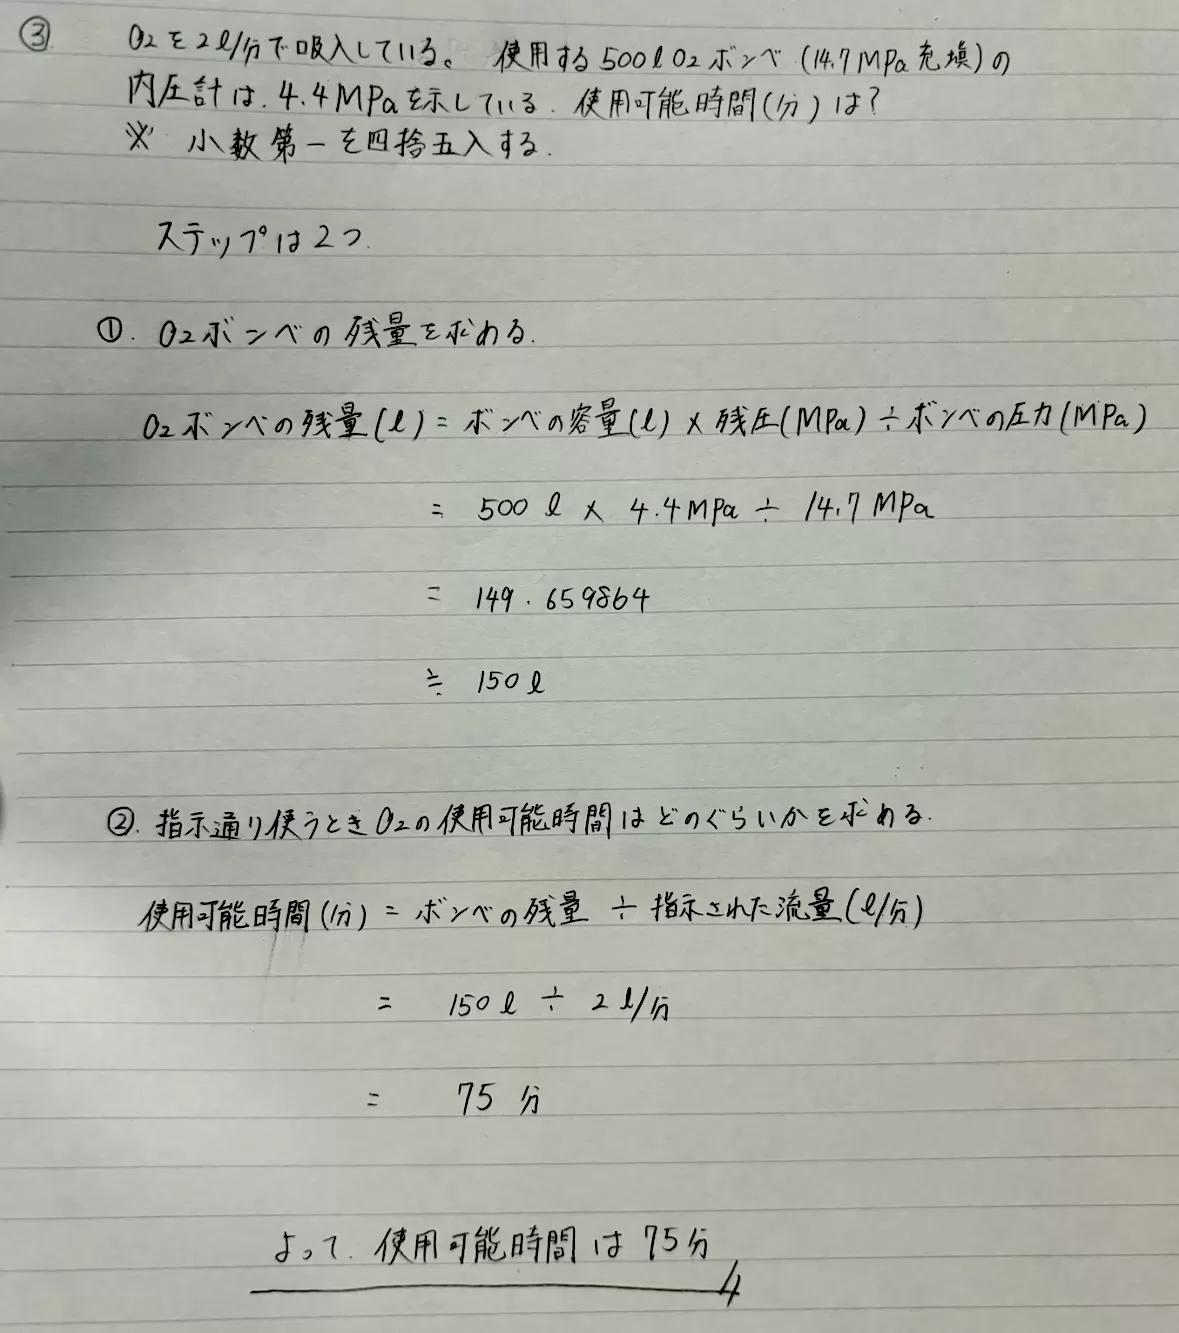 ③ O2を2l/分で吸入している。使用する500lO2ボンベ(14.7MPa充填)の
内圧計は.4.4MPaを示している.使用可能時間(分)は?
※ 小数第一を四捨五入する.
ステップは2つ.
①. O2ボンベの残量を求める.
O2ボンベの残量(l) = ボンベの容量(l) × 残圧(MPa) ÷ ボンベの圧力(MPa)
= 500l × 4.4MPa ÷ 14.7MPa
= 149.659864
≒ 150l
②. 指示通り使うときO2の使用可能時間はどのぐらいかを求める.
使用可能時間(分) = ボンベの残量 ÷ 指示された流量(l/分)
= 150l ÷ 2l/分
= 75分
よって.使用可能時間は75分